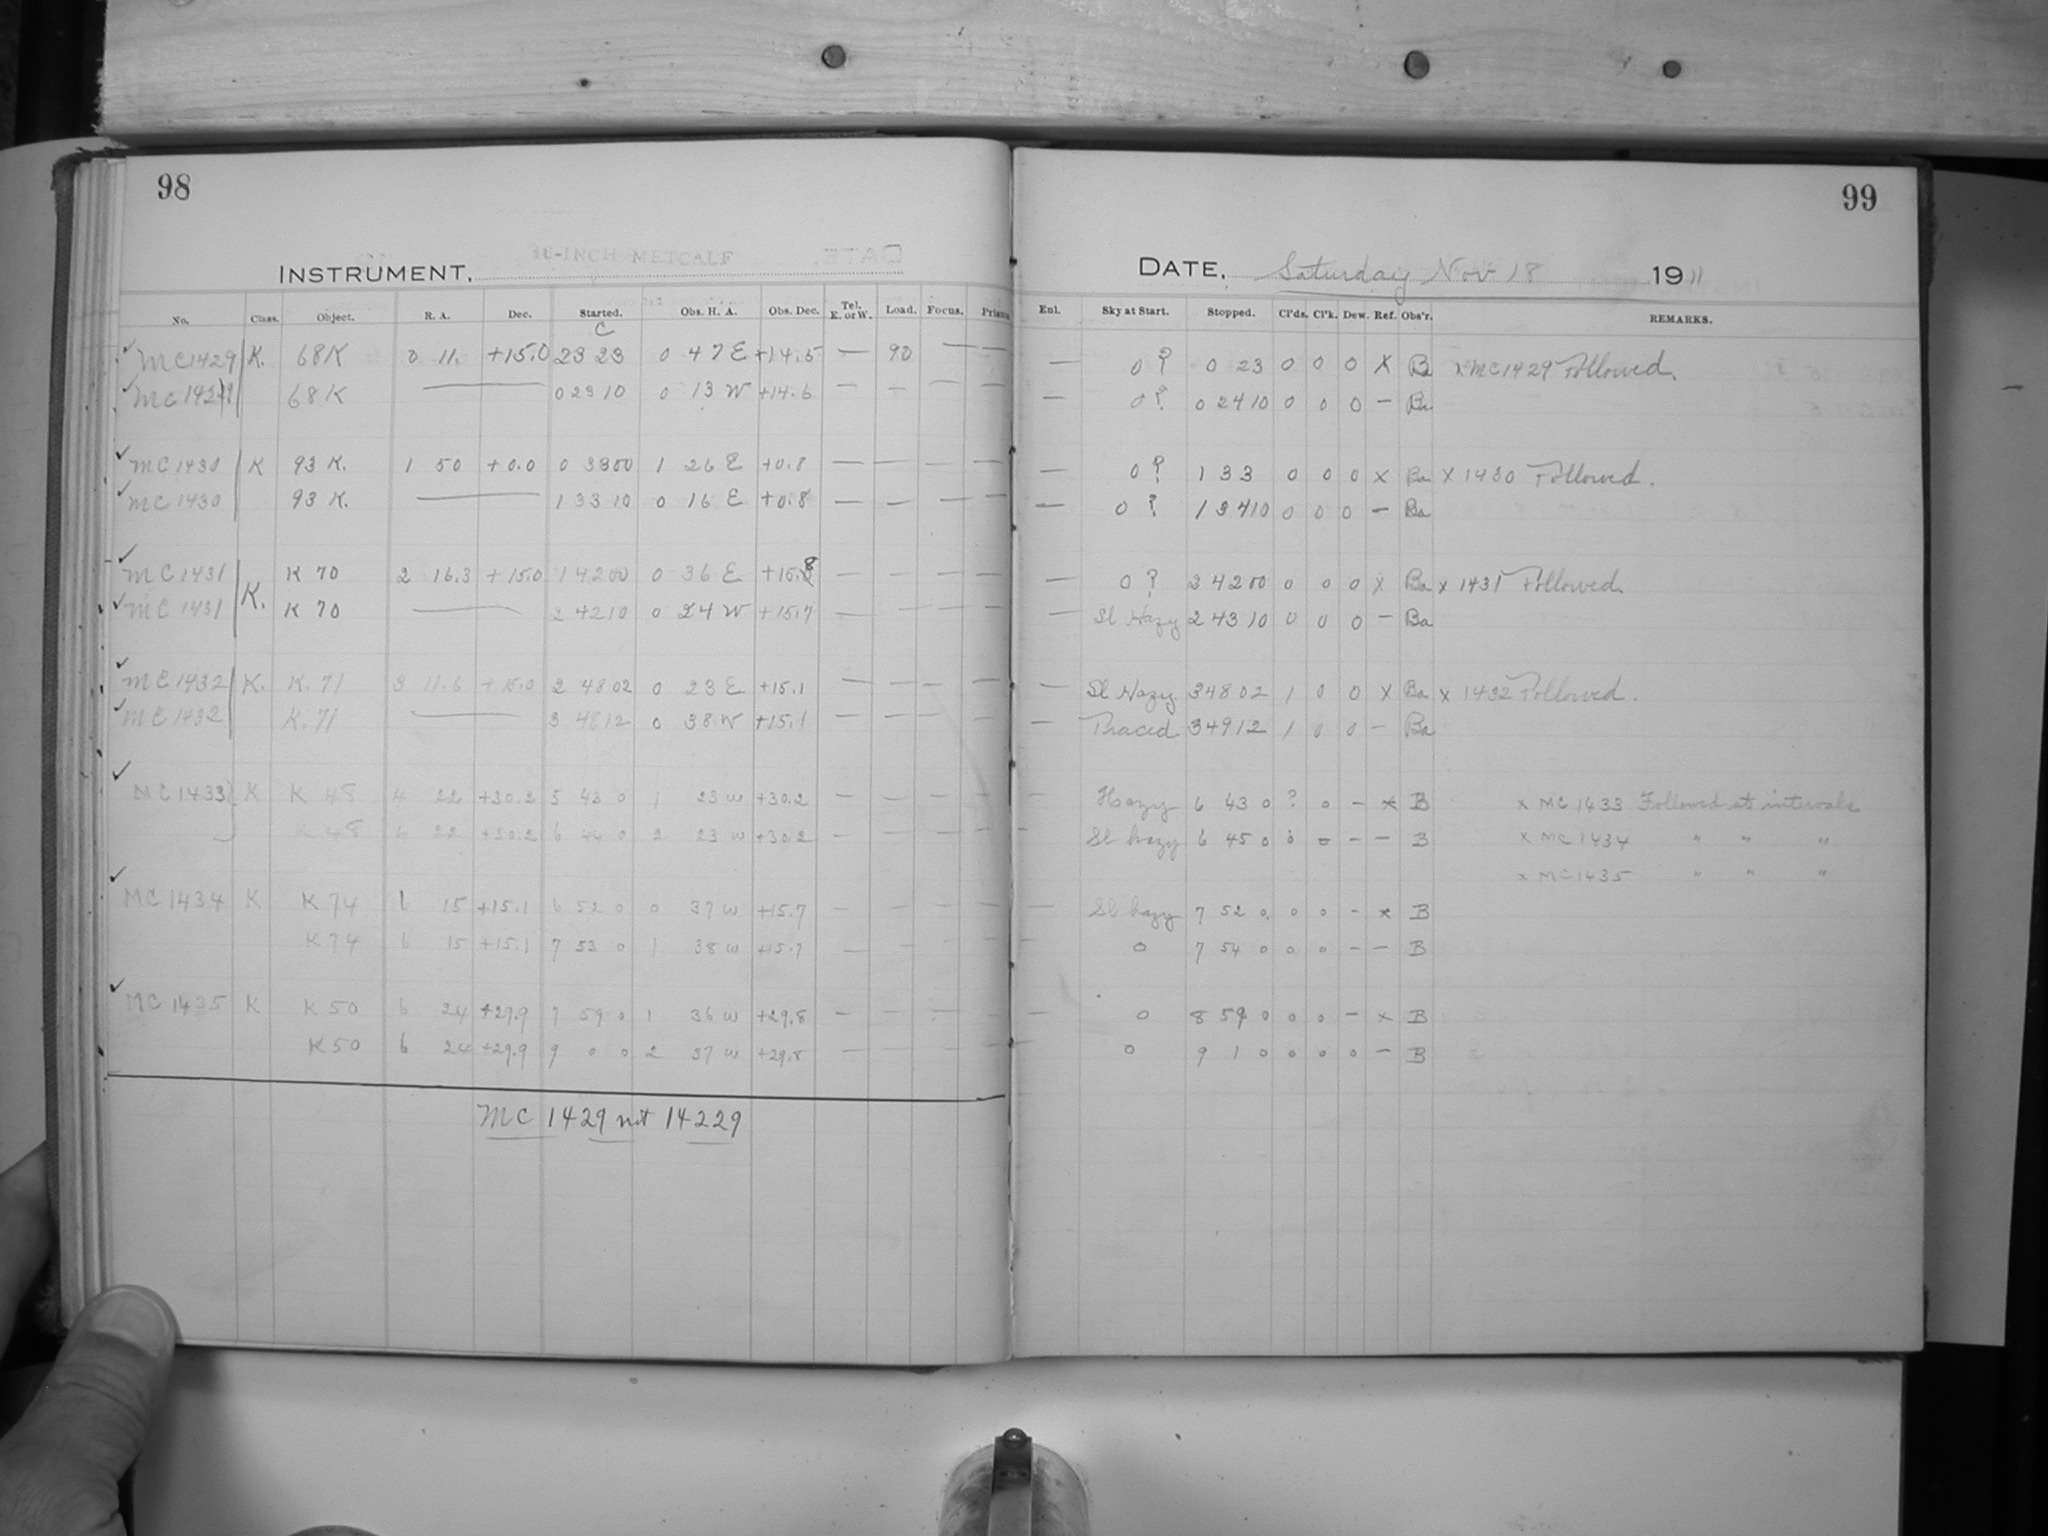 98
INSTRUMENT, 36-INCH METCALF
No. Class. Object. R. A. Dec. Started. Obs. H. A. Obs. Dec. Tel. E. or W. Load. Focus. Prisms
C
MC1429 K. 68K 0 11. +15.0 23 23 0 47 E +14.5 — 90 — —
MC1429 68K — 0 23 10 0 13 W +14.6 — — — —
MC1430 K 93 K. 1 50 +0.0 0 3300 1 26 E +0.8 — — — —
MC1430 93 K. — 1 33 10 0 16 E +0.8 — — — —
MC1431 K. K 70 2 16.3 +15.0 1 4200 0 36 E +15.8 — — — —
MC1431 K 70 — 2 4210 0 24 W +15.7 — — — —
MC1432 K. K. 71 3 11.6 +15.0 2 48 02 0 23 E +15.1 — — — —
MC1432 K. 71 — 3 4812 0 38 W +15.1 — — — —
MC1433 K K 48 4 22 +30.2 5 43 0 1 23 W +30.2 — — — —
K 48 4 22 +30.2 6 44 0 2 23 W +30.2 — — — —
MC1434 K K 74 6 15 +15.1 6 52 0 0 37 W +15.7 — — — —
K 74 6 15 +15.1 7 53 0 1 38 W +15.7 — — — —
MC1435 K K 50 6 24 +29.9 7 59 0 1 36 W +29.8 — — — —
K 50 6 24 +29.9 9 0 0 2 37 W +29.8 — — — —
MC 1429 not 14229
99
DATE, Saturday Nov 18 1911
Enl. Sky at Start. Stopped. Cl'ds. Cl'k. Dew. Ref. Obs'r. REMARKS.
— 0 ? 0 23 0 0 0 x Ba x MC1429 Followed.
— 0 ? 0 2410 0 0 0 — Ba
— 0 ? 1 33 0 0 0 x Ba x 1430 Followed.
— 0 ? 1 3410 0 0 0 — Ba
— 0 ? 2 4200 0 0 0 x Ba x 1431 Followed
— Sl Hazy 2 4310 0 0 0 — Ba
— Sl Hazy 3 48 02 1 0 0 x Ba x 1432 Followed.
— 3 4912 1 0 0 — Ba
— Hazy 6 43 0 ? 0 — x B x MC 1433 Followed at intervals
— Sl hazy 6 45 0 0 0 — — B x MC 1434 " " "
x MC1435 " " "
— Sl hazy 7 52 0 0 0 — x B
— 0 7 54 0 0 0 — — B
— 0 8 59 0 0 0 — x B
— 0 9 1 0 0 0 0 — B